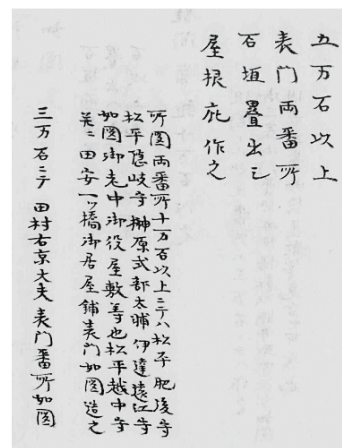 五万石以上
表门両番所
石垣畳出シ
屋根庇作之
所図両番所十万石以上ニテハ松平肥後守
松平隠岐守榊原式部太輔伊達遠江守
如図御老中御役屋敷等也松平越中守
并ニ田安一ツ橋御居屋鋪表門如図造之
三万石ニテ田村右京大夫表门番所如図